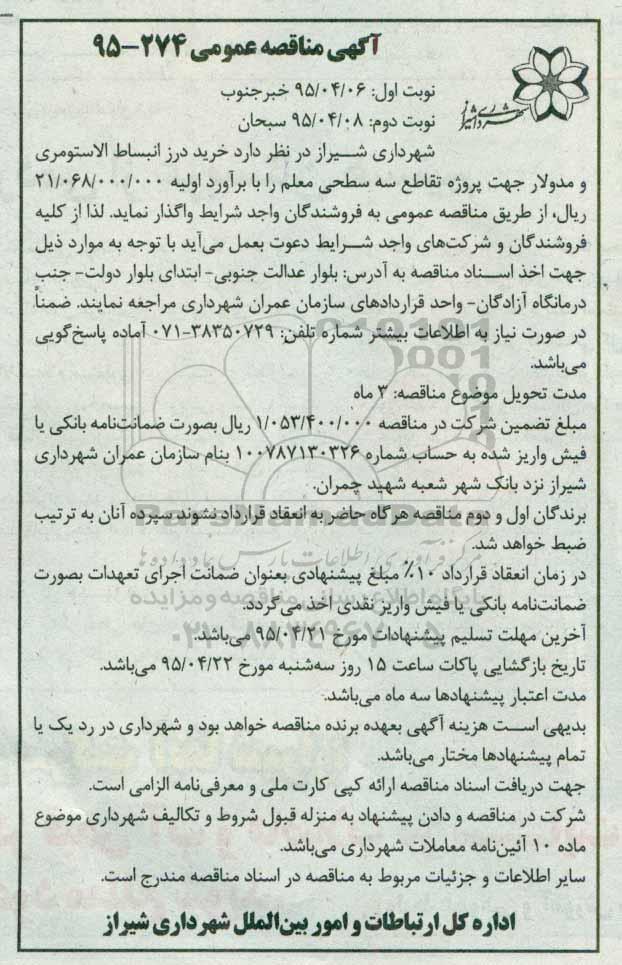 آگهی مناقصه عمومی ۲۷۴-۹۵
شهرداری شیراز
نوبت اول: ۹۵/۰۴/۰۶ خبرجنوب
نوبت دوم: ۹۵/۰۴/۰۸ سبحان
شهرداری شیراز در نظر دارد خرید درز انبساط الاستومری
و مدولار جهت پروژه تقاطع سه سطحی معلم را با برآورد اولیه ۲۱/۰۶۸/۰۰۰/۰۰۰
ریال، از طریق مناقصه عمومی به فروشندگان واجد شرایط واگذار نماید. لذا از کلیه
فروشندگان و شرکت‌های واجد شرایط دعوت بعمل می‌آید با توجه به موارد ذیل
جهت اخذ اسناد مناقصه به آدرس: بلوار عدالت جنوبی- ابتدای بلوار دولت- جنب
درمانگاه آزادگان- واحد قراردادهای سازمان عمران شهرداری مراجعه نمایند. ضمناً
در صورت نیاز به اطلاعات بیشتر شماره تلفن: ۳۸۳۵۰۷۲۹-۰۷۱ آماده پاسخ‌گویی
می‌باشد.
مدت تحویل موضوع مناقصه: ۳ ماه
مبلغ تضمین شرکت در مناقصه ۱/۰۵۳/۴۰۰/۰۰۰ ریال بصورت ضمانت‌نامه بانکی یا
فیش واریز شده به حساب شماره ۱۰۰۷۸۷۱۳۰۳۲۶ بنام سازمان عمران شهرداری
شیراز نزد بانک شهر شعبه شهید چمران.
برندگان اول و دوم مناقصه هرگاه حاضر به انعقاد قرارداد نشوند، سپرده آنان به ترتیب
ضبط خواهد شد.
در زمان انعقاد قرارداد ۱۰٪ مبلغ پیشنهادی بعنوان ضمانت اجرای تعهدات بصورت
ضمانت‌نامه بانکی یا فیش واریز نقدی اخذ می‌گردد.
آخرین مهلت تسلیم پیشنهادات مورخ ۹۵/۰۴/۲۱ می‌باشد.
تاریخ بازگشایی پاکات ساعت ۱۵ روز سه‌شنبه مورخ ۹۵/۰۴/۲۲ می‌باشد.
مدت اعتبار پیشنهادها سه ماه می‌باشد.
بدیهی است هزینه آگهی بعهده برنده مناقصه خواهد بود و شهرداری در رد یک یا
تمام پیشنهادها مختار می‌باشد.
جهت دریافت اسناد مناقصه ارائه کپی کارت ملی و معرفی‌نامه الزامی است.
شرکت در مناقصه و دادن پیشنهاد به منزله قبول شروط و تکالیف شهرداری موضوع
ماده ۱۰ آئین‌نامه معاملات شهرداری می‌باشد.
سایر اطلاعات و جزئیات مربوط به مناقصه در اسناد مناقصه مندرج است.
اداره کل ارتباطات و امور بین‌الملل شهرداری شیراز